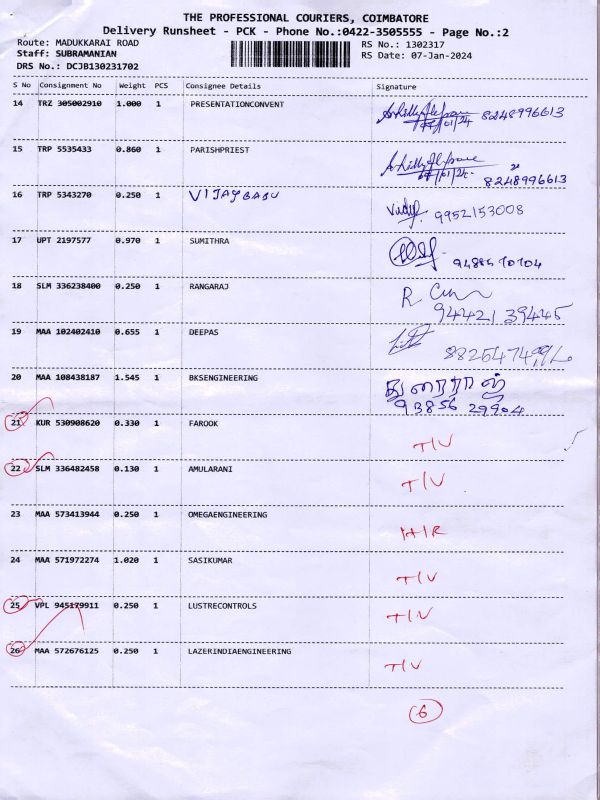 THE PROFESSIONAL COURIERS, COIMBATORE
Delivery Runsheet - PCK - Phone No.:0422-3505555 - Page No.:2
Route: MADUKKARAI ROAD RS No.: 1302317
Staff: SUBRAMANIAN RS Date: 07-Jan-2024
DRS No.: DCJB130231702
S No Consignment No Weight PCS Consignee Details Signature
14 TRZ 305002910 1.000 1 PRESENTATIONCONVENT 8248996613
15 TRP 5535433 0.860 1 PARISHPRIEST 8248996613
16 TRP 5343270 0.250 1 VIJAYBABU 9952153008
17 UPT 2197577 0.970 1 SUMITHRA
18 SLM 336238400 0.250 1 RANGARAJ R
9442139445
19 MAA 102402410 0.655 1 DEEPAS
20 MAA 108438187 1.545 1 BKSENGINEERING துரைராஜ்
93856 29904
21 KUR 530908620 0.330 1 FAROOK T/V
22 SLM 336482458 0.130 1 AMULARANI T/V
23 MAA 573413944 0.250 1 OMEGAENGINEERING H/R
24 MAA 571972274 1.020 1 SASIKUMAR T/V
25 VPL 945179911 0.250 1 LUSTRECONTROLS T/V
26 MAA 572676125 0.250 1 LAZERINDIAENGINEERING T/V
6